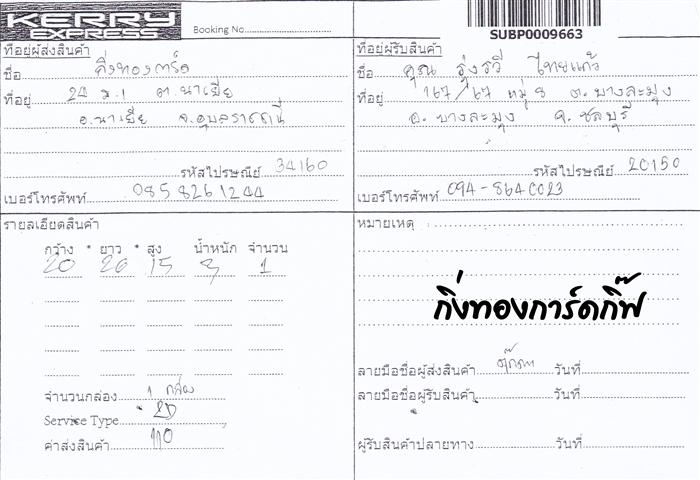 KERRY
EXPRESS
Booking No.
SUBP0009663
ที่อยู่ผู้ส่งสินค้า
ชื่อ กิ่งทองการ์ด
ที่อยู่ 24 ม.1 ต.นาเยีย
อ.นาเยีย จ.อุบลราชธานี
รหัสไปรษณีย์ 34160
เบอร์โทรศัพท์ 085 8261244
ที่อยู่ผู้รับสินค้า
ชื่อ คุณ รุ่งรวี ไทยแก้ว
ที่อยู่ 167/67 หมู่ 8 ต.บางละมุง
อ. บางละมุง จ. ชลบุรี
รหัสไปรษณีย์ 20150
เบอร์โทรศัพท์ 094-8640023
รายละเอียดสินค้า
กว้าง * ยาว * สูง น้ำหนัก จำนวน
20 26 15 3 1
จำนวนกล่อง 1 กล่อง
Service Type 2D
ค่าส่งสินค้า 110
หมายเหตุ :
กิ่งทองการ์ดกิ๊ฟ
ลายมือชื่อผู้ส่งสินค้า วันที่
ลายมือชื่อผู้รับสินค้า วันที่
ผู้รับสินค้าปลายทาง วันที่